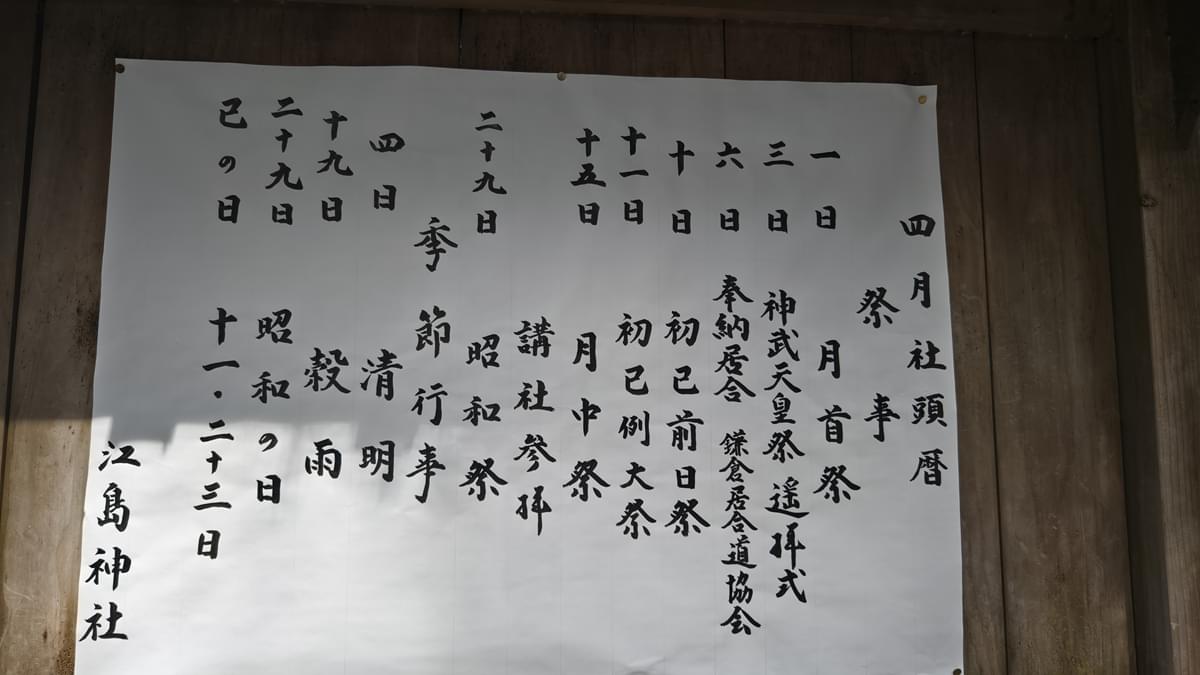 四月社頭暦
祭事
一日 月首祭
三日 神武天皇祭遥拝式
六日 奉納居合 鎌倉居合道協会
十日 初巳前日祭
十一日 初巳例大祭
十五日 月中祭
講社参拝
二十九日 昭和祭
季節行事
四日 清明
十九日 穀雨
二十九日 昭和の日
巳の日 十一・二十三日
江島神社